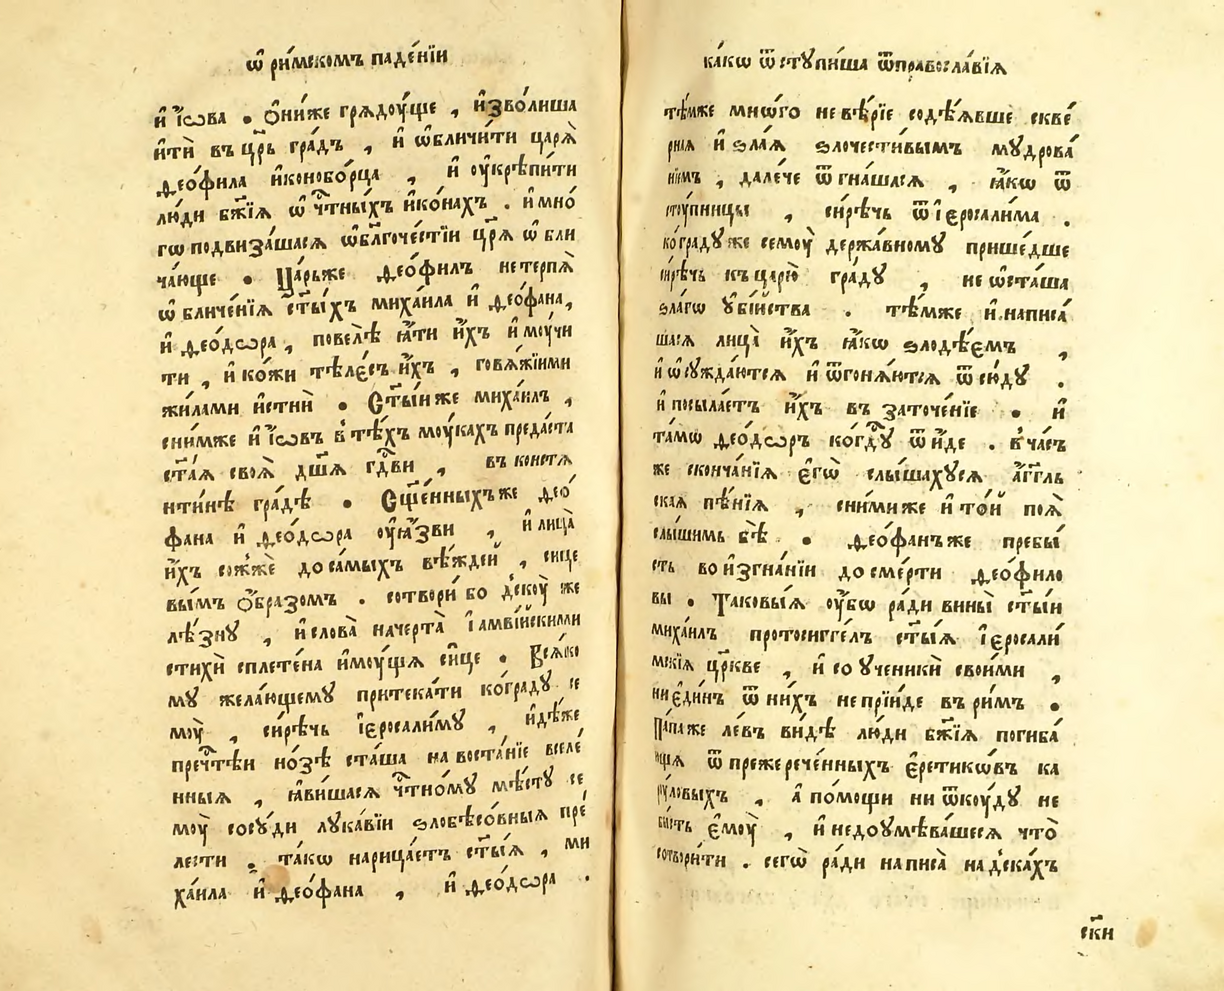 ѽ ри́мскомъ паде́нїи
и҆ і҆ѡ́ва . ѻ҆ни́же грѧдоу́ще , и҆зво́лиша
и҆тѝ въ цр҃ь гра́дъ , и҆ ѡ҆бличи́ти царѧ̀
ѳео́фила и҆конобо́рца , и҆ оу҆крѣпи́ти
лю́ди бж҃їѧ ѡ҆ чт҃ны́хъ и҆ко́нахъ . и҆ мно́
гѡ подвиза́шасѧ ѡ҆ бл҃гоче́стїи цр҃ѧ ѡ҆бли
ча́юще . Ца́рьже ѳео́филъ не терпѧ̀
ѡ҆бличе́нїѧ ст҃ы́хъ миха́ила и҆ ѳео́фана,
и҆ ѳео́дѡра , повелѣ̀ ꙗ҆́ти и҆̀хъ и҆ моу́чи
ти , и҆ ко́жи тѣле́съ и҆́хъ , говѧ́жїими
жи́лами и҆стнѝ . Ст҃ы́и же миха́илъ ,
сни́мже и҆ і҆ѡ́въ в̾ тѣ́хъ моу́кахъ преда́ста
ст҃а́ѧ своѧ̀ дш҃ѧ гд҃ви , въ констѧ
нти́нѣ гра́дѣ . Сщ҃е́нныхъ же ѳео́
фана и҆ ѳео́дѡра оу҆ꙗ҆зви , и҆ лица̀
и҆́хъ сож̾жѐ до са́мыхъ вѣ́ждей , сице
вы́мъ ѻ҆́бразомъ . сотвори́ бо д̾скоу̀ же
лѣ́зну , и҆ слова̀ начерта̀ і҆амві́йскими
стихѝ сплете́на и҆моу́щѧ си́це . Всѧ́ко
мꙋ жела́ющемꙋ притека́ти ко́градꙋ се
моу̀ , си́рѣчь і҆еросали́мꙋ , и҆дѣ́же
пречт҃ѣи но́зѣ ста́ша на воста́нїе вселе́
нныѧ , ꙗ҆ви́шасѧ чт҃номꙋ мѣ́стꙋ се
моу̀ сосꙋ́ди лꙋка́вїи ѕлобѣсо́вныѧ пре́
лести . та́кѡ нарица́етъ ст҃ы́ѧ , ми
ха́ила и҆ ѳео́фана , и҆ ѳео́дѡра .
ка́кѡ ѿстꙋпи́ша ѿ правосла́вїѧ
тѣ́мже мнѡ́го невѣ́рїе содѣ́ѧвше скве́
рнаѧ и҆ ѕла́ѧ ѕлочести́вымъ мꙋдрова́
нїемъ , дале́че ѿгна́шасѧ , ꙗ҆́кѡ ѿ
стꙋ́пницы , си́рѣчь ѿ і҆еросали́ма .
ко́градꙋ же семоу̀ держа́вномꙋ прише́дше
си́рѣчь къ царю̀ гра́дꙋ , не ѡ҆ста́ша
ѕла́гѡ ꙋ҆бі́йства . тѣ́мже и҆ написа́
шасѧ лица̀ и҆́хъ ꙗ҆́кѡ ѕлодѣ́емъ ,
и҆ ѡ҆сꙋжда́ютсѧ и҆ ѿгонѧ́ютсѧ ѿсю́дꙋ .
и҆ посыла́етъ и҆́хъ въ заточе́нїе . и҆
та́мѡ ѳео́дѡръ ко гд҃ꙋ ѿи́де . в̾ ча́съ
же сконча́нїѧ є҆гѡ̀ слы́шахꙋсѧ а҆́гг҃ль
скаѧ пѣ́нїѧ , сни́миже и҆ то́й поѧ̀
слы́шимъ бѣ̀ . ѳео́фанъ же пребы́
сть во и҆згна́нїи до сме́рти ѳео́фило
вы . Таковы́ѧ оу҆́бѡ ра́ди вины̀ ст҃ы́и
миха́илъ протосигге́лъ ст҃ы́ѧ і҆еросали́
мскїѧ цр҃кве , и҆ со ꙋ҆ченикѝ свои́ми ,
ни є҆ди́нъ ѿ ни́хъ не прїи́де въ ри́мъ .
Па́па же ле́въ ви́дѣ лю́ди бж҃їѧ погиба́
ющѧ ѿ прежерече́нныхъ є҆ретикѡ́въ ка
рꙋловыхъ , а҆ по́мощи ни ѿкоу́дꙋ не
бы́сть є҆моу̀ , и҆ недоꙋмѣва́шесѧ что̀
сотвори́ти . сегѡ̀ ра́ди написа̀ на д̾ска́хъ
ск҃и